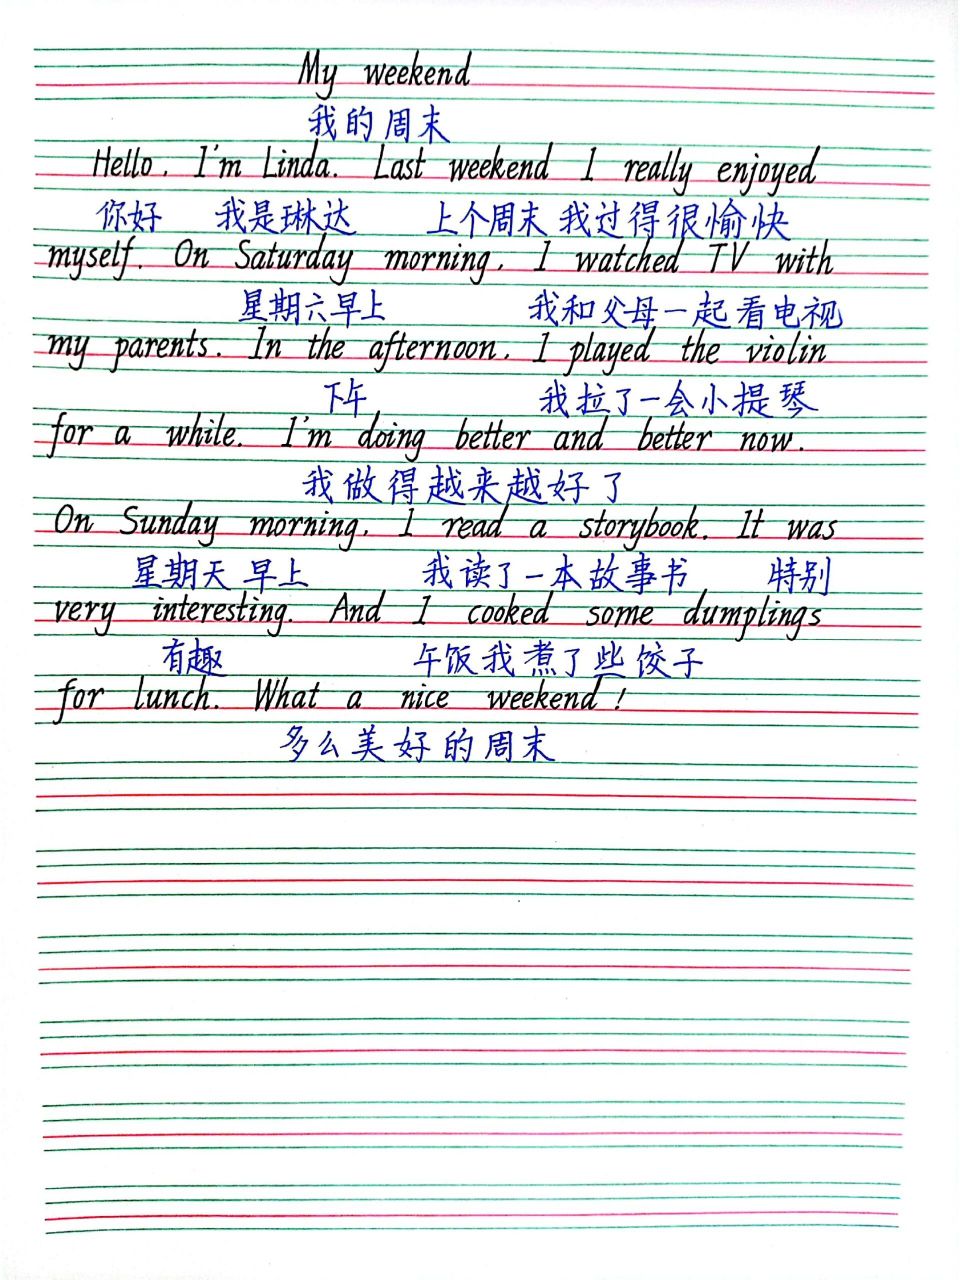 My weekend
我的周末
Hello, I'm Linda. Last weekend I really enjoyed
你好 我是琳达 上个周末 我过得很愉快
myself. On Saturday morning, I watched TV with
星期六早上 我和父母一起看电视
my parents. In the afternoon, I played the violin
下午 我拉了一会小提琴
for a while. I'm doing better and better now.
我做得越来越好了
On Sunday morning, I read a storybook. It was
星期天早上 我读了一本故事书 特别
very interesting. And I cooked some dumplings
有趣 午饭我煮了些饺子
for lunch. What a nice weekend!
多么美好的周末